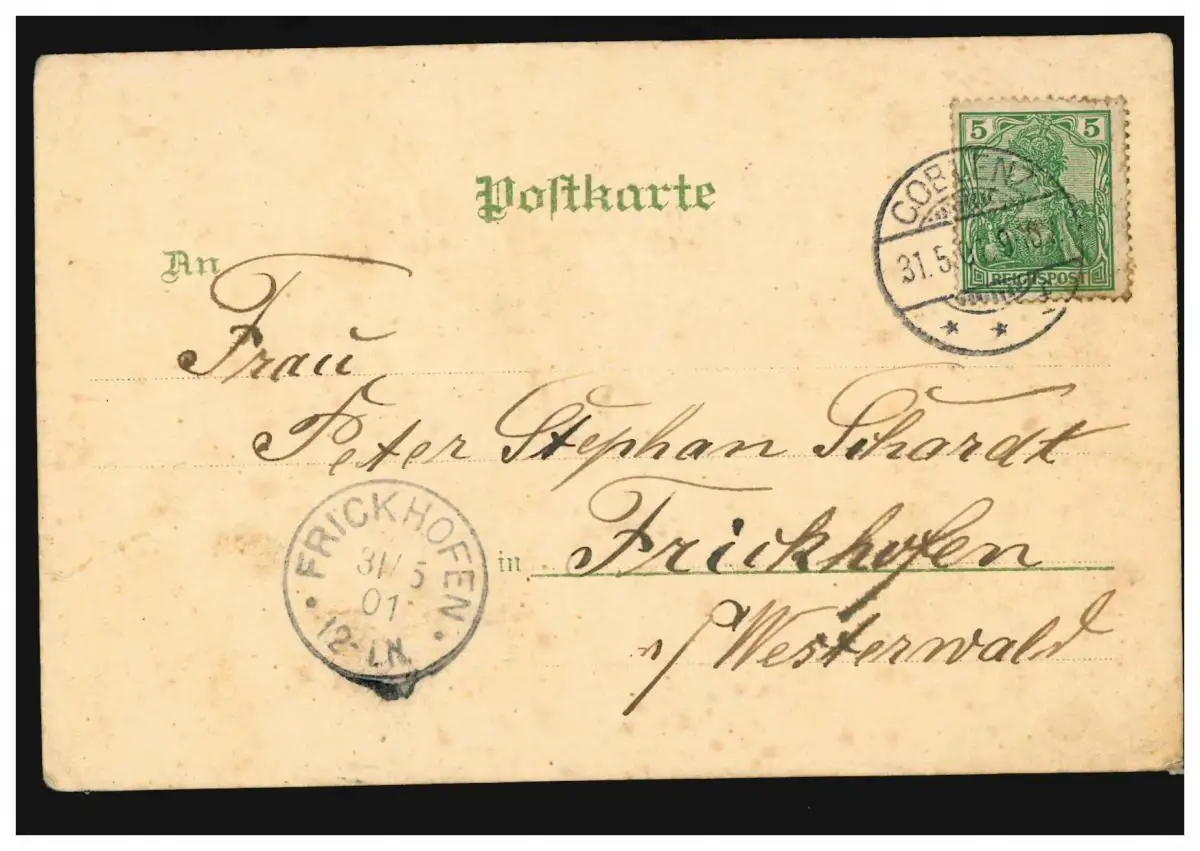 Postkarte
5 5
REICHSPOST
COBLENZ
31.5.
An
Frau
Peter Stephan Schardt
in Frickhofen
i/ Westerwald
FRICKHOFEN
31/5
01
12-1.N.